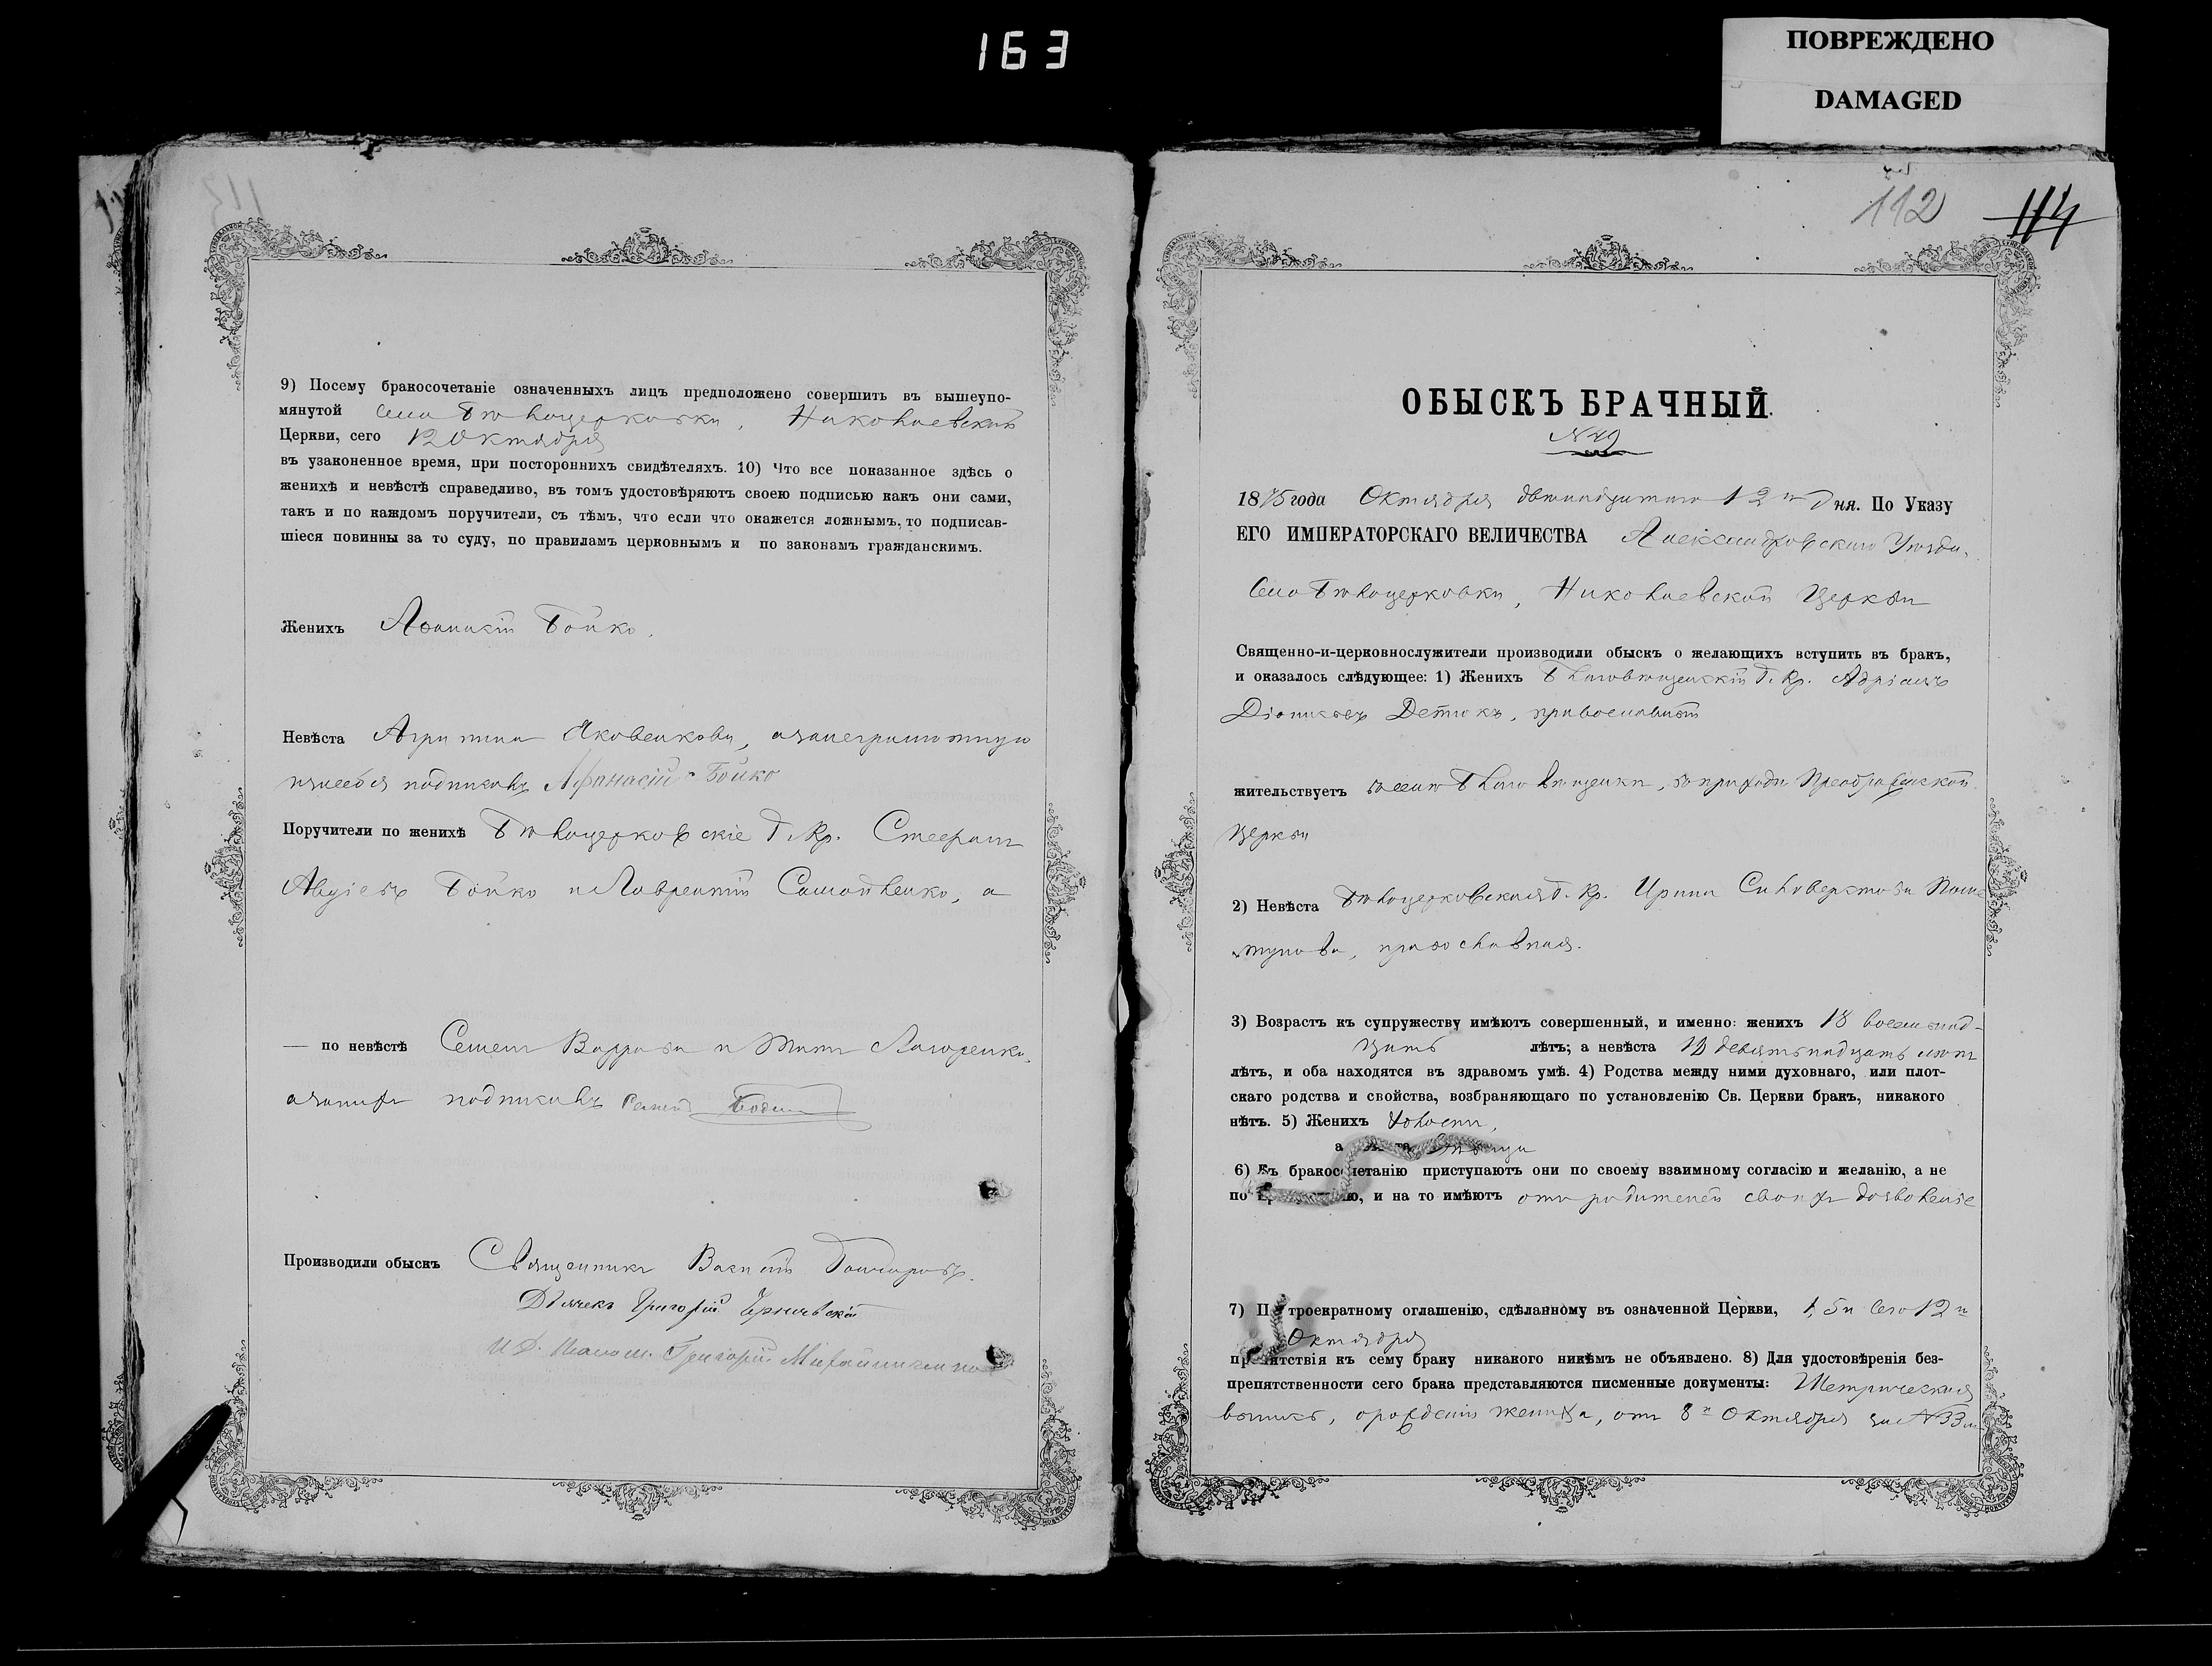 163
ПОВРЕЖДЕНО
DAMAGED
9) Посему бракосочетаніе означенныхъ лицъ предположено совершить въ вышеупо-
мянутой села Бѣлоцерковки, Николаевской
Церкви, сего 12 Октября
въ узаконенное время, при постороннихъ свидѣтеляхъ. 10) Что все показанное здѣсь о
женихѣ и невѣстѣ справедливо, въ томъ удостовѣряютъ своею подписью какъ они сами,
такъ и по каждомъ поручители, съ тѣмъ, что если что окажется ложнымъ, то подписав-
шіеся повинны за то суду, по правиламъ церковнымъ и по законамъ гражданскимъ.
Женихъ Афанасій Бойко.
Невѣста Яковенкова, а за неграмотную
подписалъ Афанасій Бойко
Поручители по женихѣ Бѣлоцерковскіе Г. Кр. Стефанъ
Бойко и Лаврентій Самойленко, а
— по невѣстѣ Семенъ и
за нихъ подписалъ
Производили обыскъ Священникъ Василій
Дьячекъ Григорій
И. Д. Григорій
112 114
ОБЫСКЪ БРАЧНЫЙ.
N 49
1875 года Октября двенадцатаго 12 го дня. По Указу
ЕГО ИМПЕРАТОРСКАГО ВЕЛИЧЕСТВА Александровскаго Уѣзда,
Села Бѣлоцерковки, Николаевской Церкви
Священно-и-церковнослужители производили обыскъ о желающихъ вступить въ бракъ,
и оказалось слѣдующее: 1) Женихъ Благовѣщенскій Г. Кр. Адріанъ
Діонисьевъ Детюкъ, православный
жительствуетъ въ селѣ Благовѣщенки, въ приходѣ Преображенской
Церкви
2) Невѣста Бѣлоцерковская Г. Кр. Ирина Силоверстова
православная.
3) Возрастъ къ супружеству имѣютъ совершенный, и именно: женихъ 18 восемнад-
цать лѣтъ; а невѣста 19 девятьнадцать лѣтъ
лѣтъ, и оба находятся въ здравомъ умѣ. 4) Родства между ними духовнаго, или плот-
скаго родства и свойства, возбраняющаго по установленію Св. Церкви бракъ, никакого
нѣтъ. 5) Женихъ холостъ,
а дѣвица
6) Къ бракосочетанію приступаютъ они по своему взаимному согласію и желанію, а не
по и на то имѣютъ отъ родителей своихъ дозволеніе
7) По троекратному оглашенію, сдѣланному въ означенной Церкви, 1, 5 и сего 12 го
Октября
препятствія къ сему браку никакого никѣмъ не объявлено. 8) Для удостовѣренія без-
препятственности сего брака представляются писменные документы: Метрическая
выпись, о рожденіи жениха, отъ 8 го Октября за N 33 м